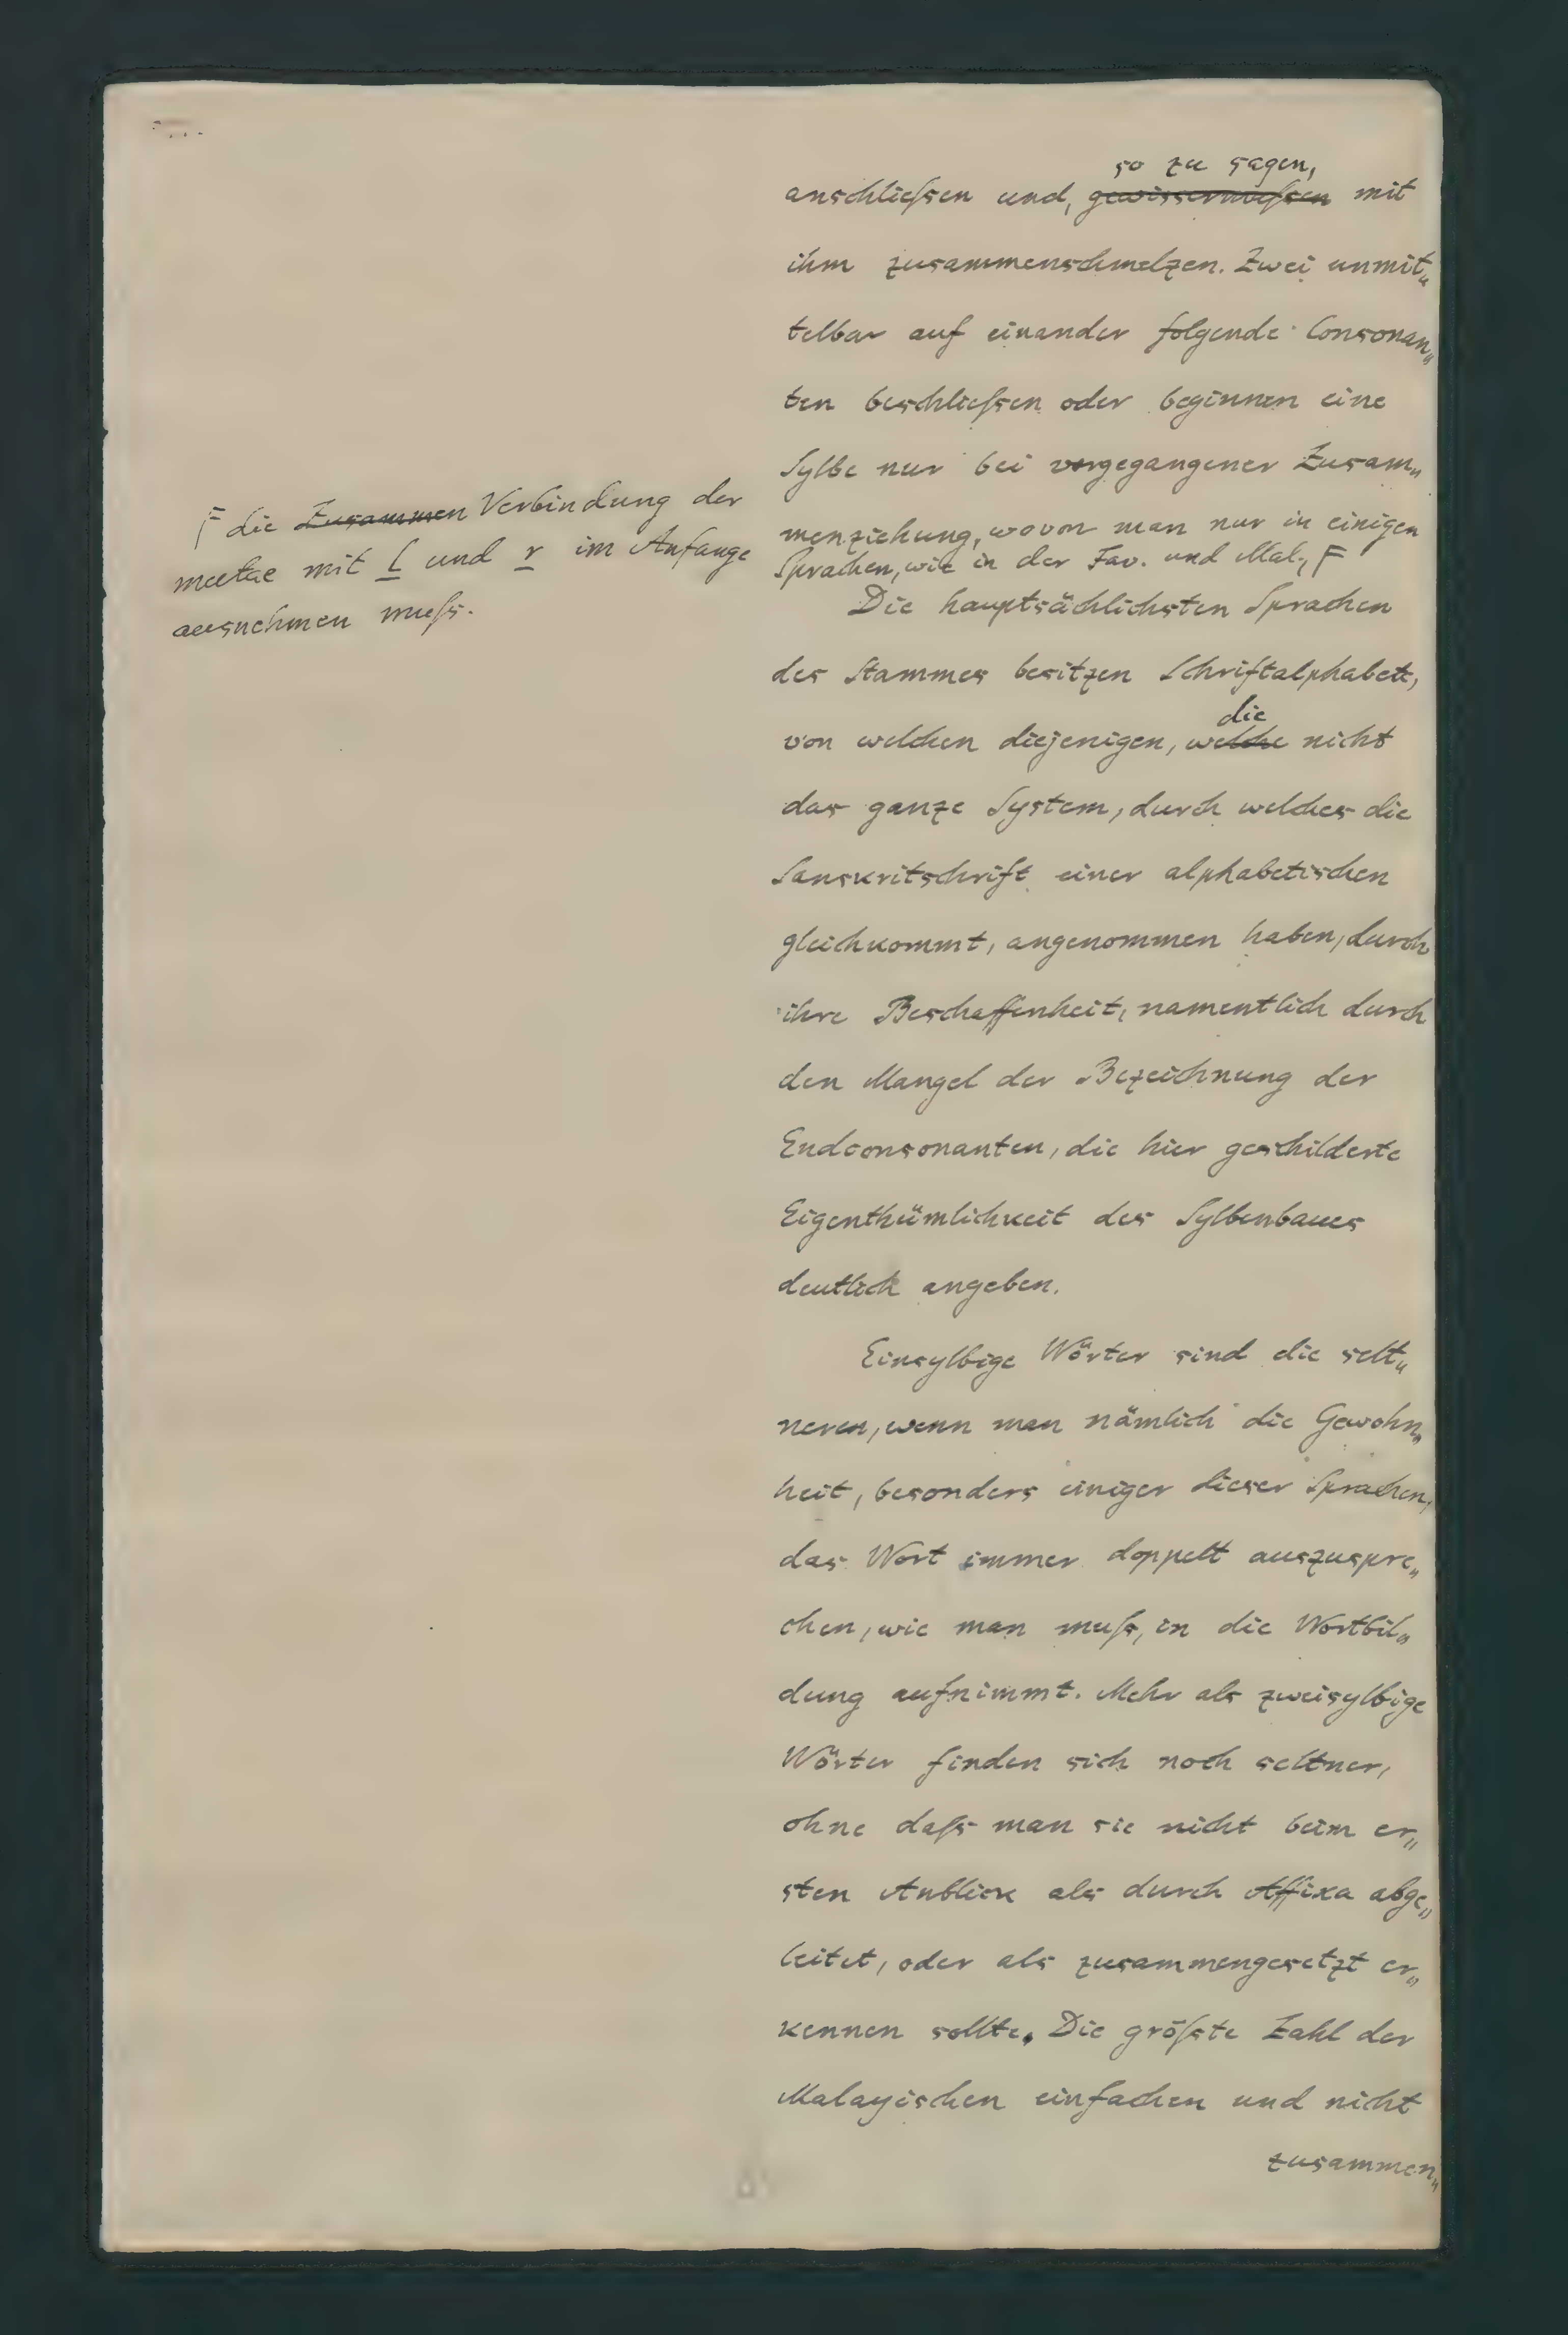 so zu sagen,
anschließen und, gewissermaßen mit
ihm zusammenschmelzen. Zwei unmit„
telbar auf einander folgende Consonan„
ten beschließen oder beginnen eine
Sylbe nur bei vorgegangener Zusam„
menziehung, wovon man nur in einigen
Sprachen, wie in der Jav. und Mal., F
F die Zusammen Verbindung der
mutae mit l und r im Anfange
ausnehmen muß.
Die hauptsächlichsten Sprachen
des Stammes besitzen Schriftalphabete,
die
von welchen diejenigen, welche nicht
das ganze System, durch welches die
Sanskritschrift einer alphabetischen
gleichkommt, angenommen haben, durch
ihre Beschaffenheit, namentlich durch
den Mangel der Bezeichnung der
Endconsonanten, die hier geschilderte
Eigenthümlichkeit des Sylbenbaues
deutlich angeben.
Einsylbige Wörter sind die selt„
neren, wenn man nämlich die Gewohn„
heit, besonders einiger dieser Sprachen,
das Wort immer doppelt auszuspre„
chen, wie man muß, in die Wortbil„
dung aufnimmt. Mehr als zweisylbige
Wörter finden sich noch seltner,
ohne daß man sie nicht beim er„
sten Anblick als durch Affixa abge„
leitet, oder als zusammengesetzt er„
kennen sollte. Die größte Zahl der
Malayischen einfachen und nicht
zusammen„